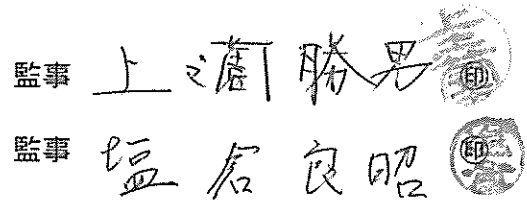 監事 上 勝男 ㊞
監事 塩倉良昭 ㊞